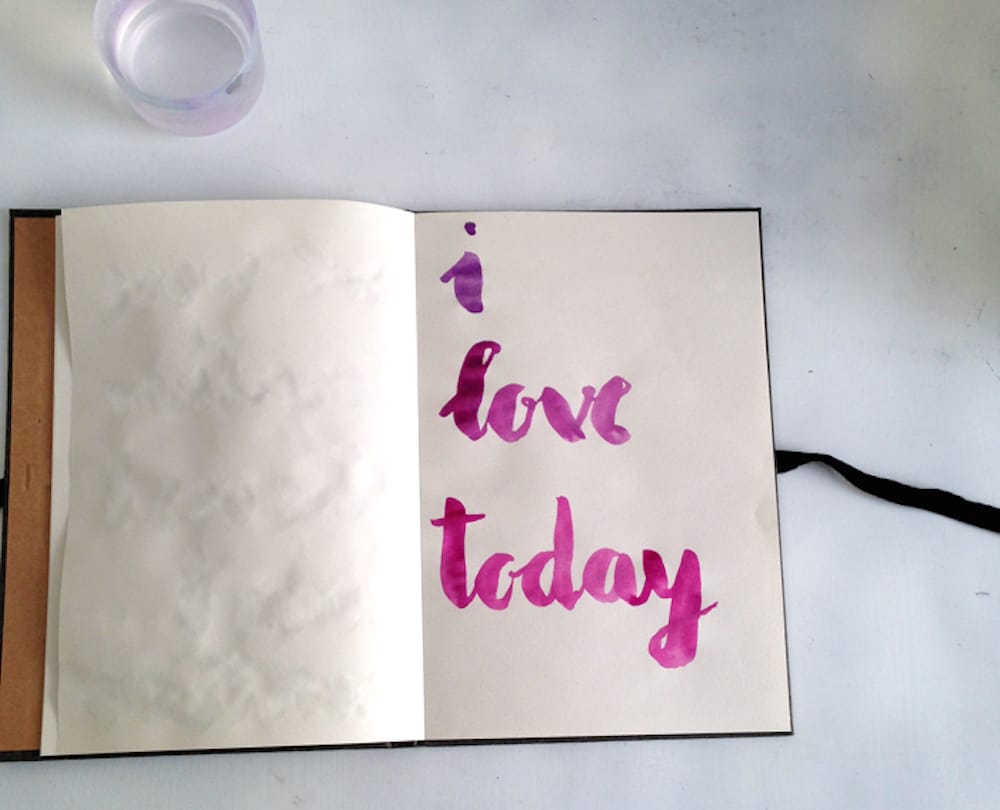 i
love
today